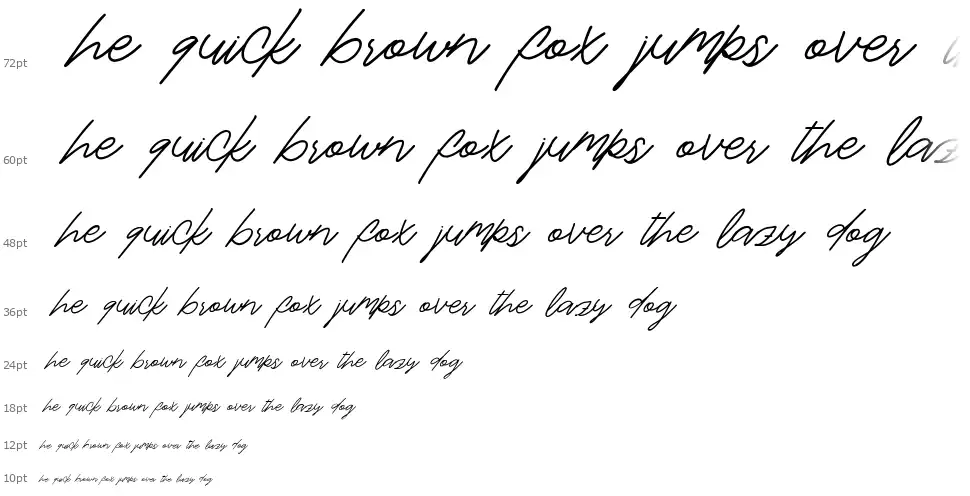 72pt he quick brown fox jumps over
60pt he quick brown fox jumps over the laz
48pt he quick brown fox jumps over the lazy dog
36pt he quick brown fox jumps over the lazy dog
24pt he quick brown fox jumps over the lazy dog
18pt he quick brown fox jumps over the lazy dog
12pt he quick brown fox jumps over the lazy dog
10pt he quick brown fox jumps over the lazy dog